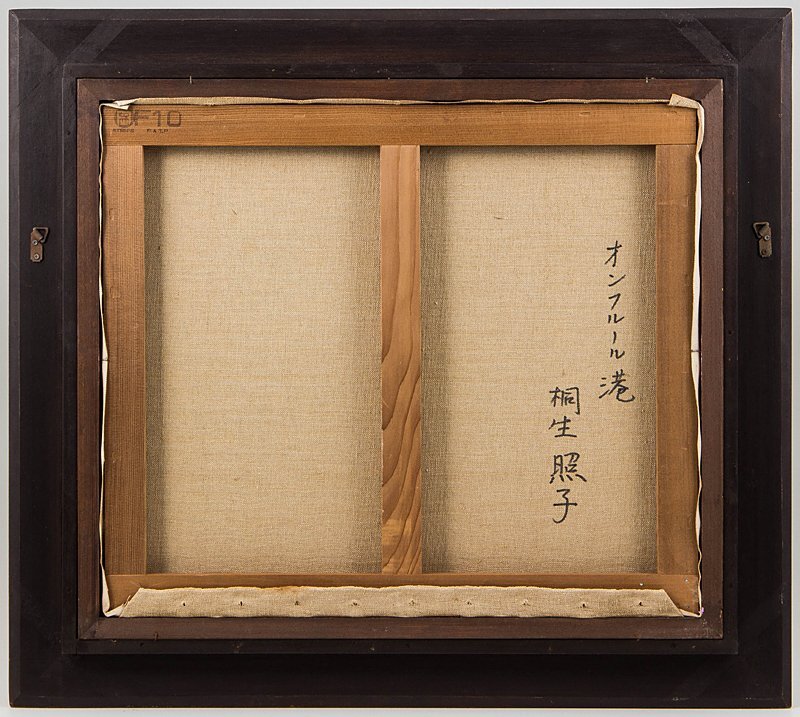 F10
オンフルール港
桐生照子